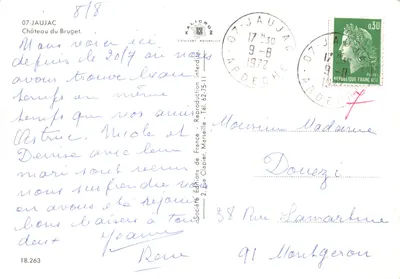 8/8
07 JAUJAC
Château du Bruget.
Nous voici ici
depuis le 20/7 au
avons trouvé beau
temps en même
temps que nos amis
Astruc. Nicole et
Denise avec leur
mari sont venus
nous surprendre
on avons été
bons baisers à tous
deux
Jeanne
René
18.263
KALICHROM
Société Editions de France - Reproduction interdite
2, Rue Clapier, Marseille - Tél. 62-75
07-JAUJAC
17 H 30
9-8
1972
ARDECHE
07-JAUJAC
17
9-8
ARDECHE
0,30
REPUBLIQUE FRANCAISE
7
Monsieur Madame
Douezi
38 Rue Lamartine
91 Montgeron